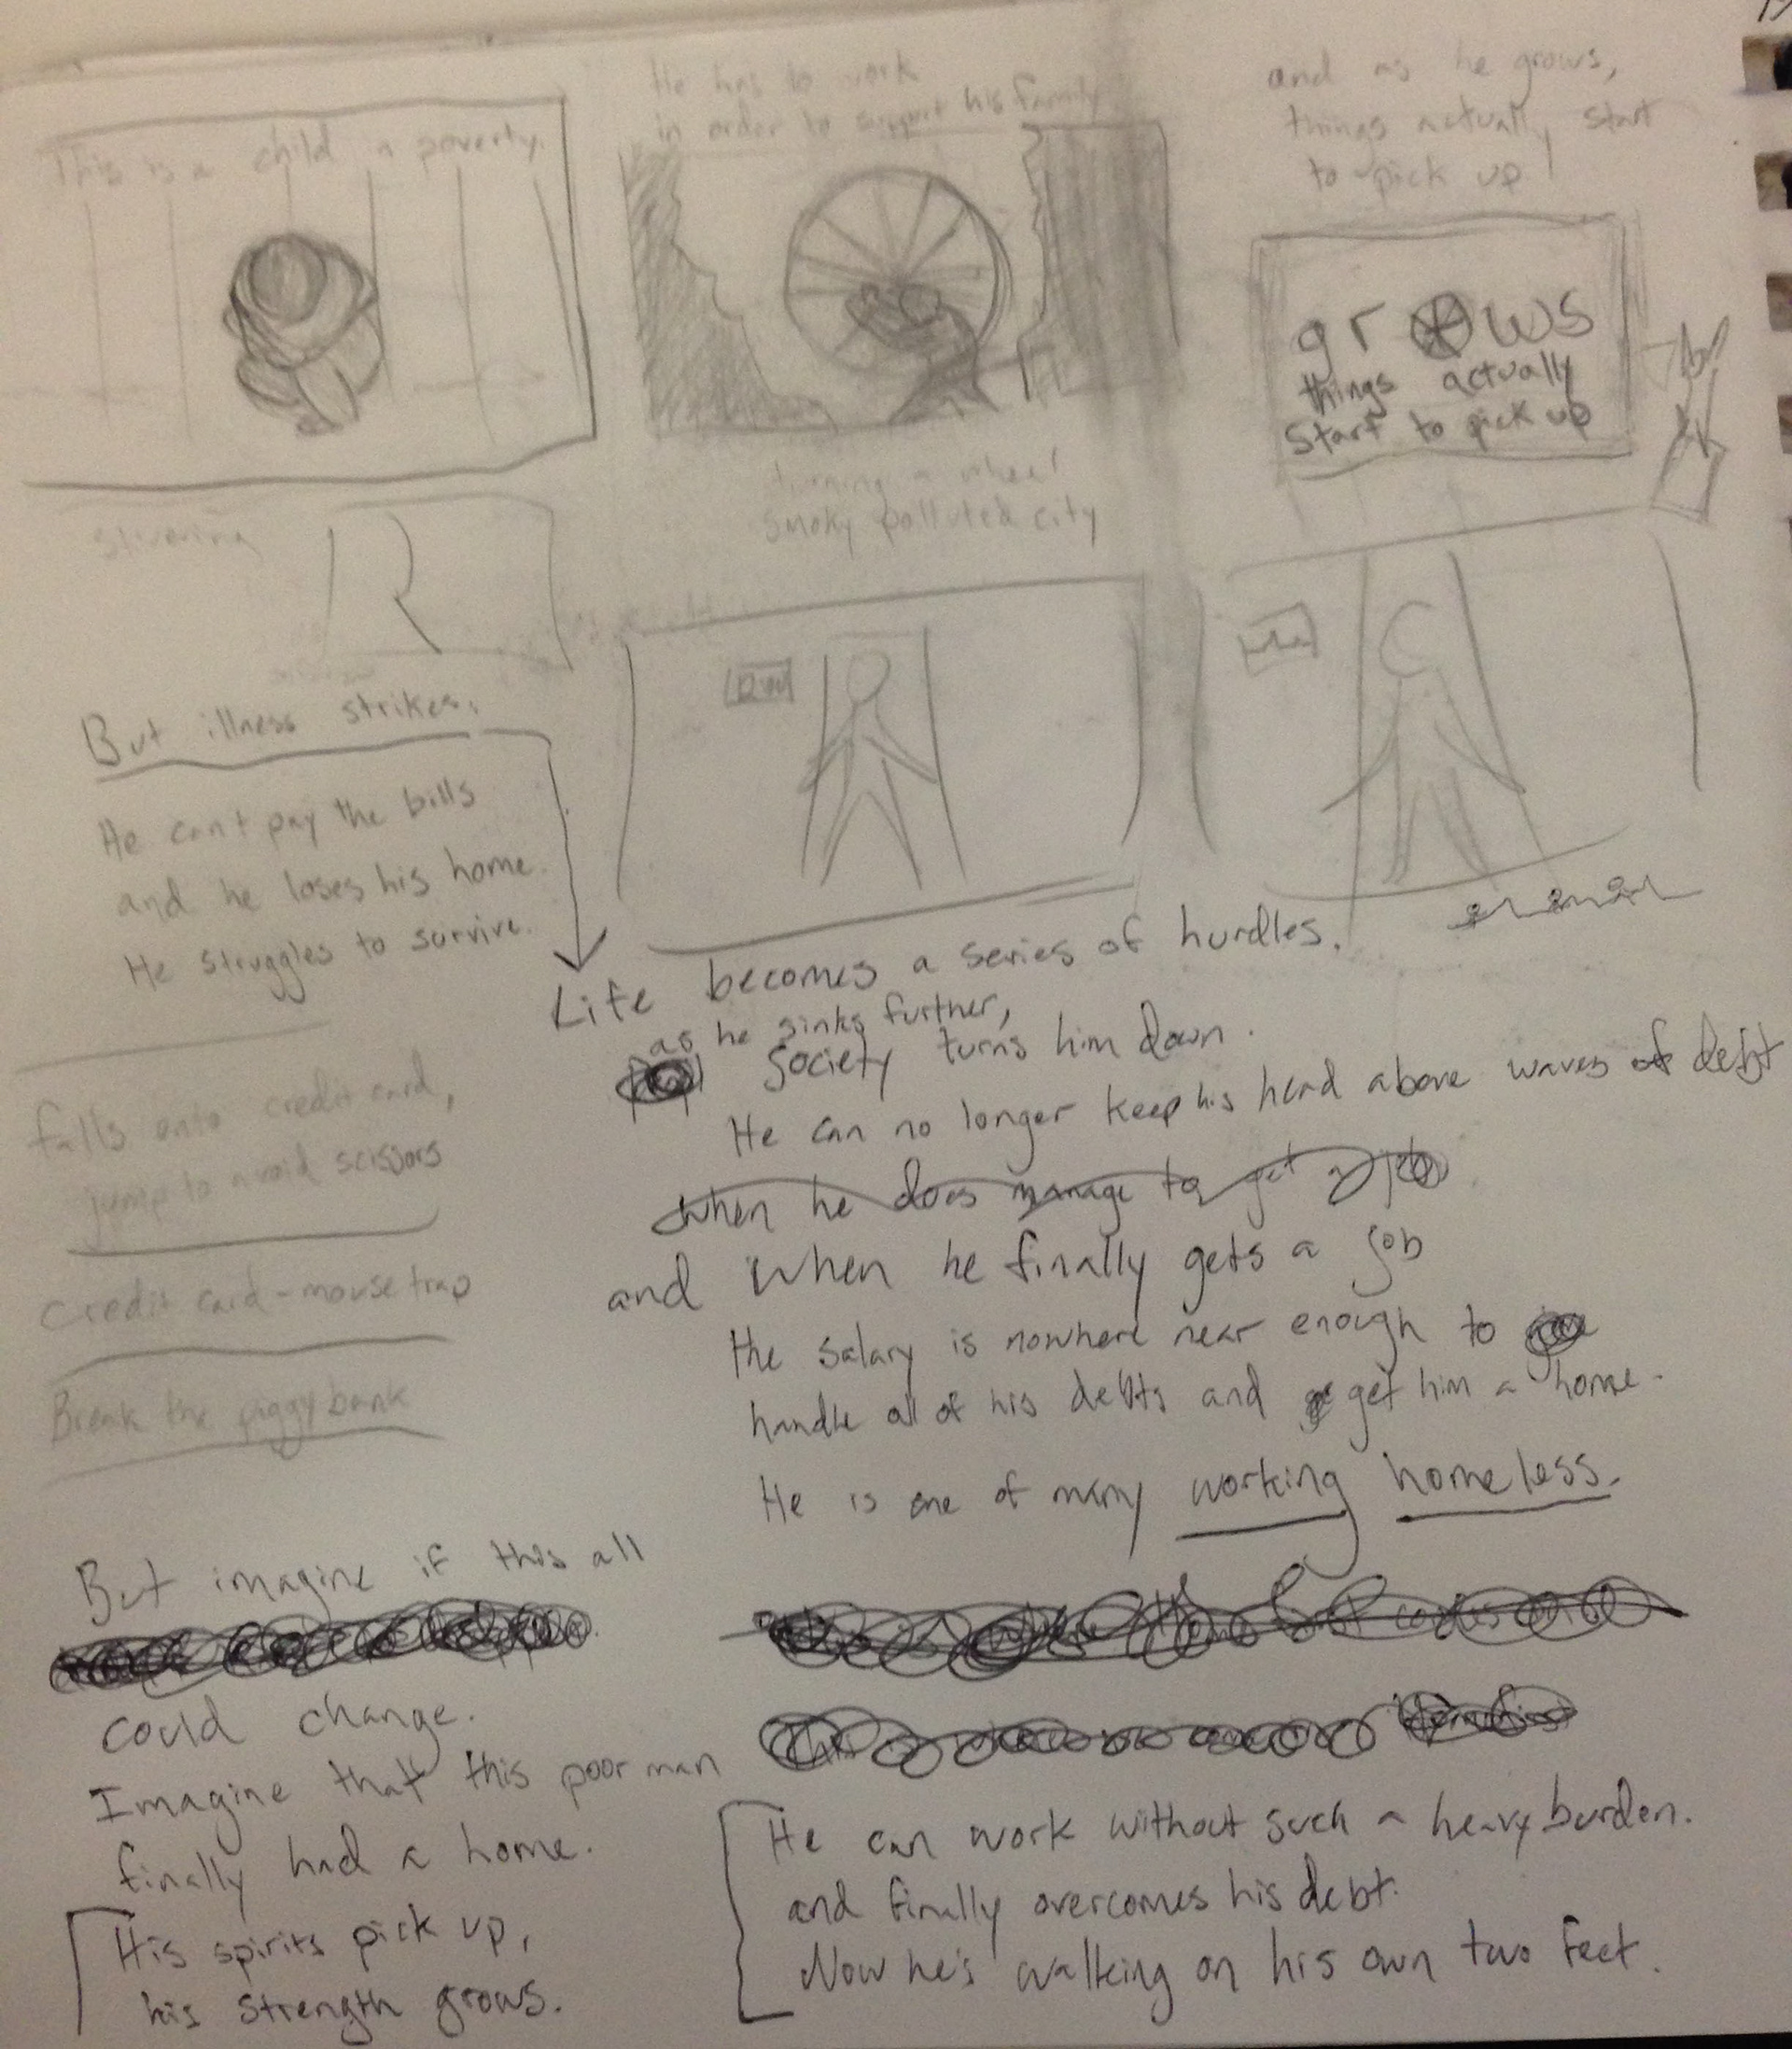 This is a child in poverty.
He has to work
in order to support his family.
and as he grows,
things actually start
to pick up
grows
things actually
start to pick up
turning a wheel
smoky polluted city
shivering
But illness strikes.
He can't pay the bills
and he loses his home.
He struggles to survive.
falls onto credit card,
jump to avoid scissors
credit card - mouse trap
Break the piggy bank
Life becomes a series of hurdles.
as he sinks further,
Society turns him down.
He can no longer keep his head above waves of debt
when he does manage to get a job
and when he finally gets a job
the salary is nowhere near enough to
handle all of his debts and get him a home.
He is one of many working homeless.
But imagine if this all
could change.
Imagine that this poor man
finally had a home.
His spirits pick up,
his strength grows.
He can work without such a heavy burden.
and finally overcomes his debt.
Now he's walking on his own two feet.